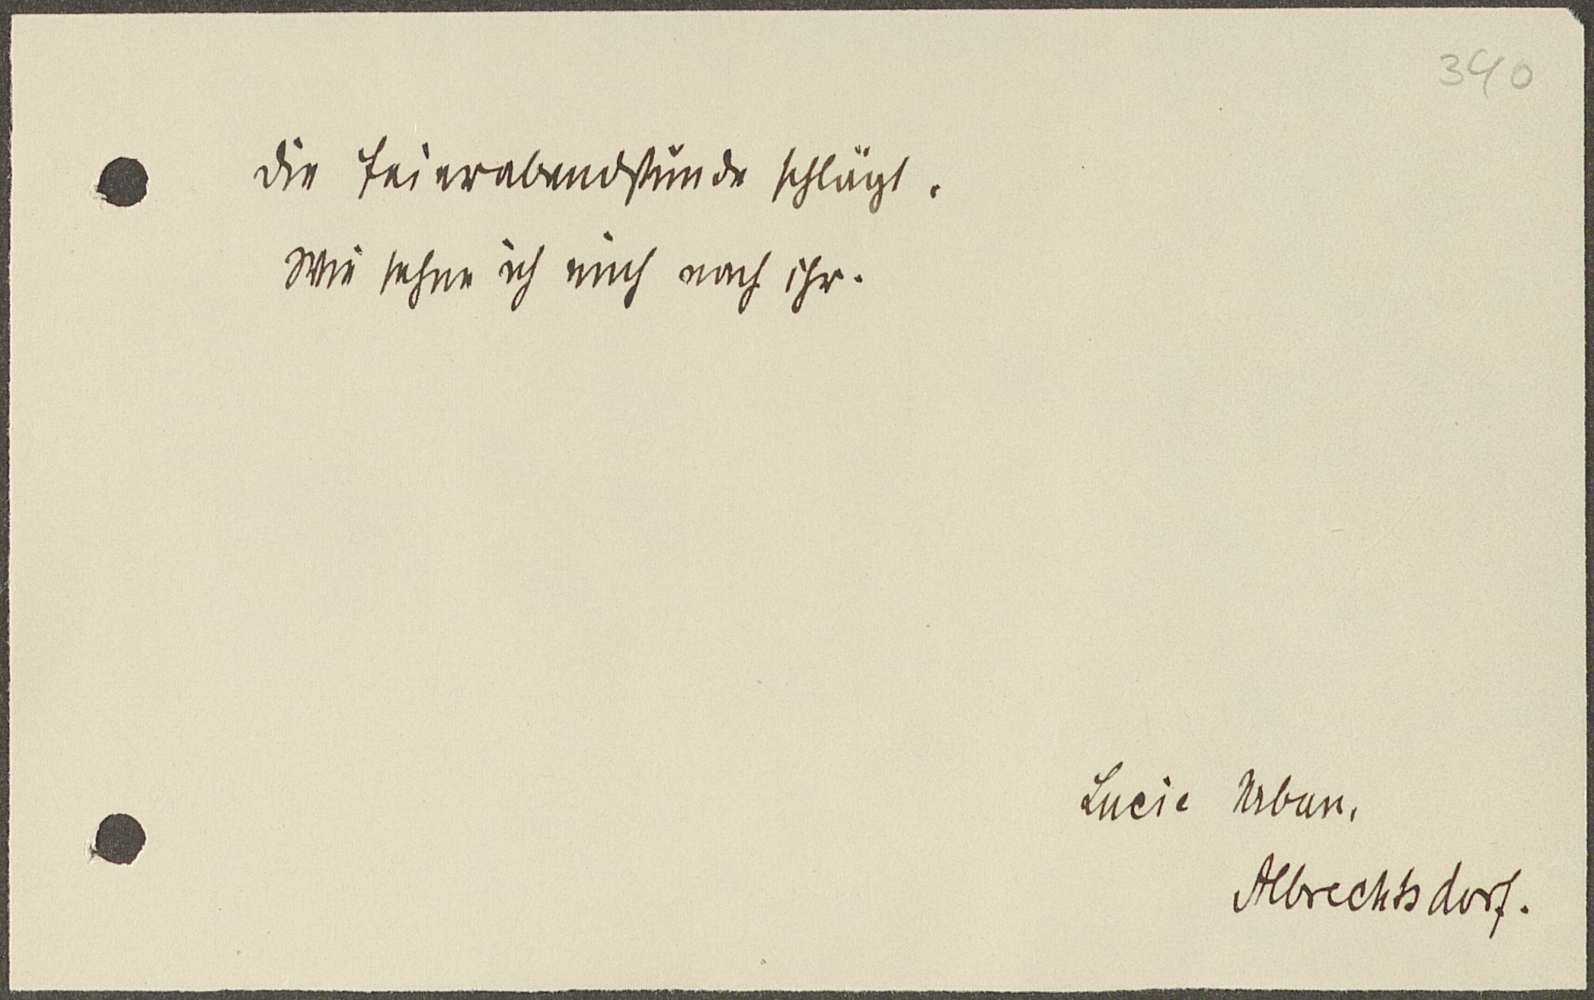 390
Die Feierabendstunde schlägt.
Wie sehne ich mich nach ihr.
Lucie Urban,
Albrechtsdorf.